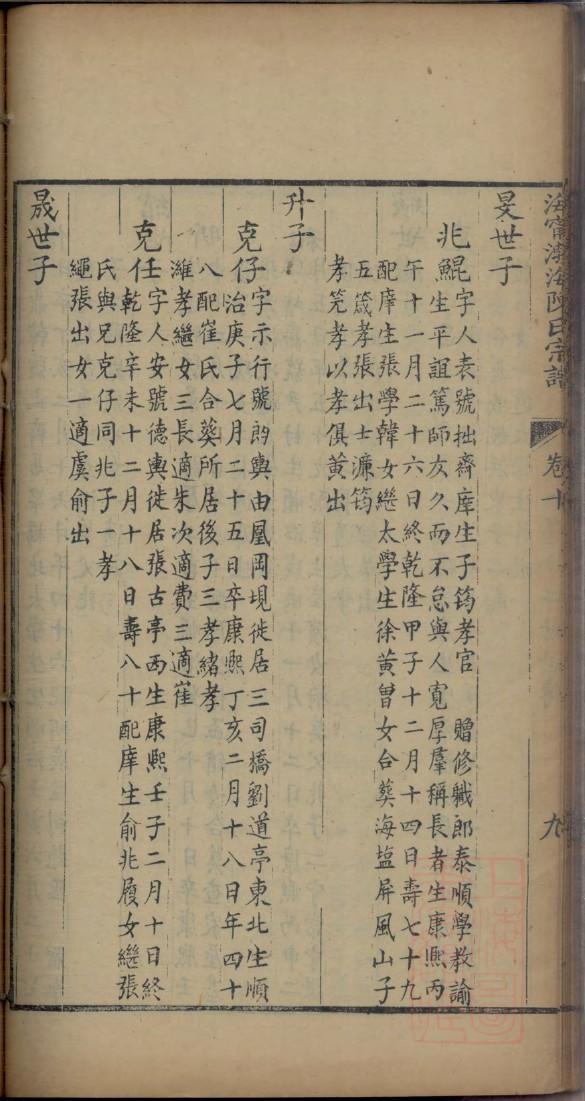 海甯渤海陳氏宗譜
卷十
九
旻世子
兆鯤字人袁號拙齋庠生子筠孝官 贈修軄郎泰順學教諭
生平誼篤師友久而不怠與人寬厚羣稱長者生康熙丙
午十一月二十六日終乾隆甲子十二月十四日壽七十九
配庠生張學韓女繼太學生徐黄曾女合葬海塩屏風山子
五箴孝張出士濂筠
孝筅孝以孝俱黄出
升子
克仔字示行號昀輿由凰岡堄徙居三司橋劉道亭東北生順
治庚子七月二十五日卒康熙丁亥二月十八日年四十
八配崔氏合葬所居後子三孝緒孝
濰孝繼女三長適朱次適費三適崔
克任字人安號德輿徙居張古亭西生康熙壬子二月十日終
乾隆辛未十二月十八日壽八十配庠生俞兆履女繼張
氏與兄克仔同兆子一孝
繩張出女一適虞俞出
晟世子